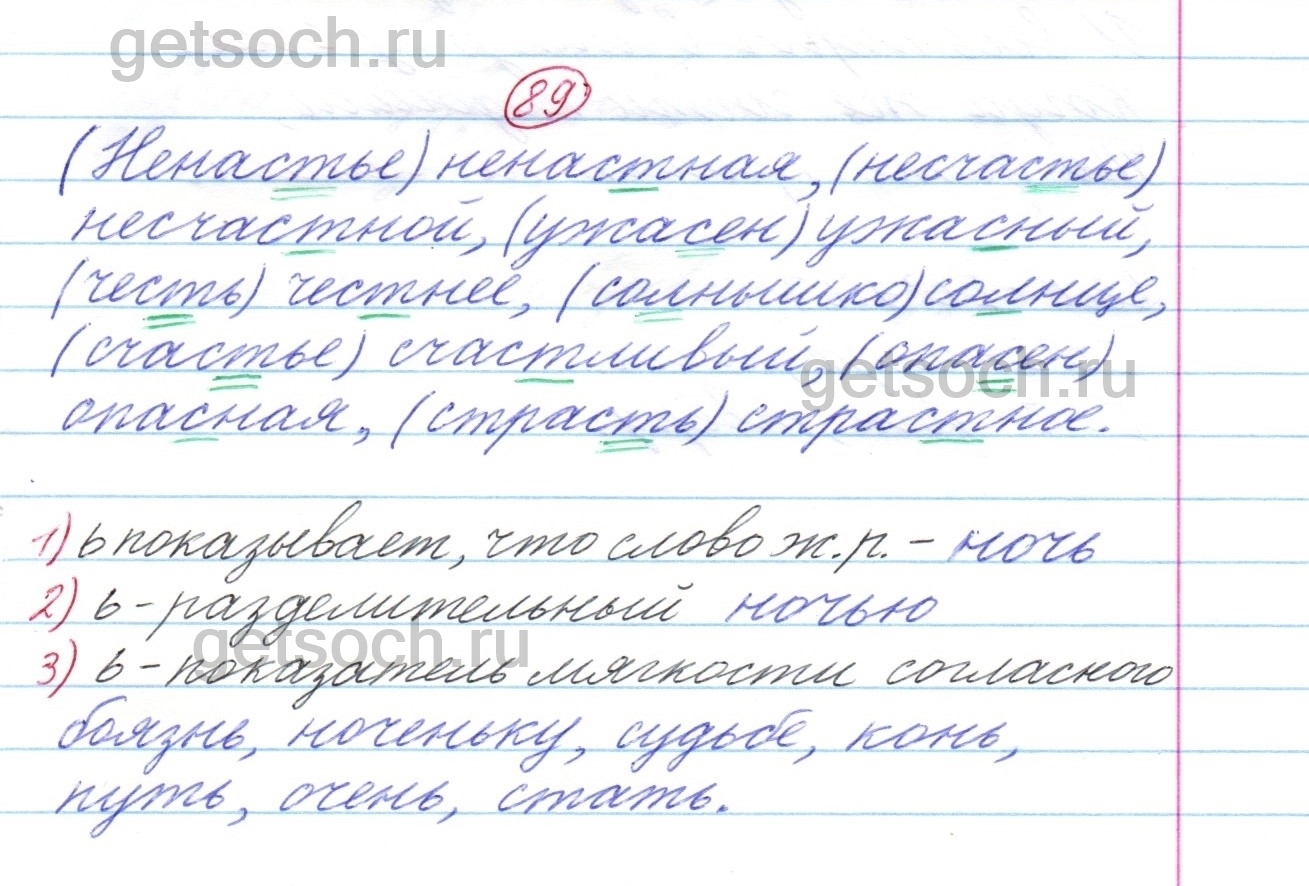 getsoch.ru
89
(Ненастье) ненастная, (несчастье)
несчастной, (ужасен) ужасный,
(честь) честнее, (солнышко) солнце,
(счастье) счастливый, (опасен)
getsoch.ru
опасная, (страсть) страстное.
1) ь показывает, что слово ж.р. - ночь
2) ь - разделительный ночью
getsoch.ru
3) ь - показатель мягкости согласного
боязнь, ноченьку, судьбе, конь,
путь, очень, стать.